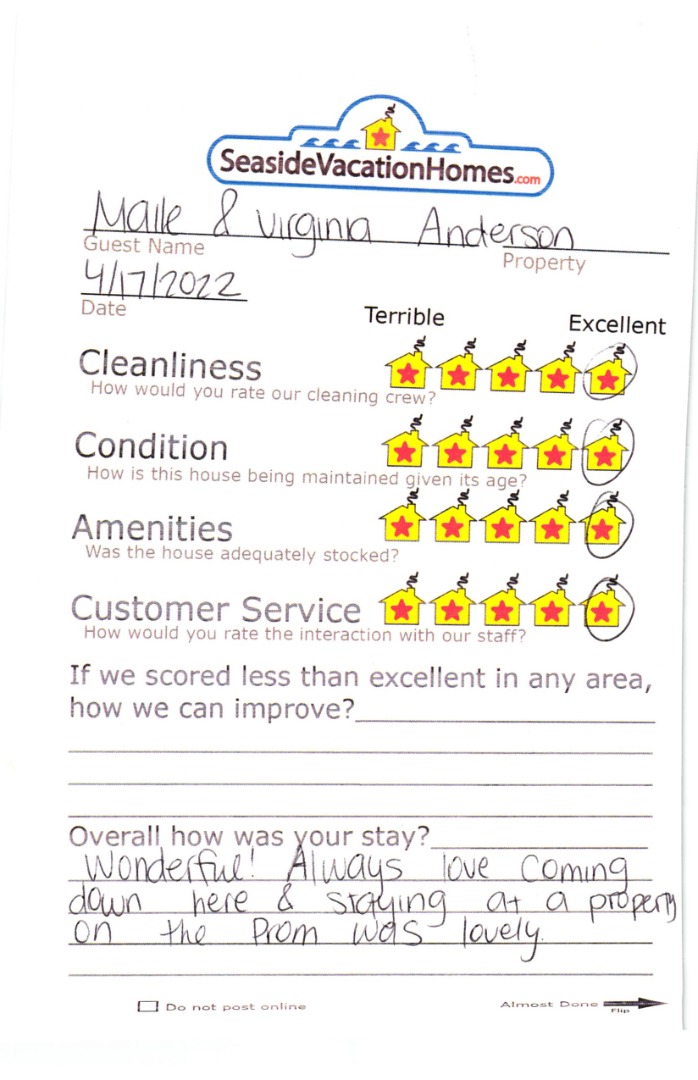 SeasideVacationHomes.com
Maile & Virginia Anderson
Guest Name Property
4/17/2022
Date
Terrible Excellent
Cleanliness
How would you rate our cleaning crew?
Condition
How is this house being maintained given its age?
Amenities
Was the house adequately stocked?
Customer Service
How would you rate the interaction with our staff?
If we scored less than excellent in any area,
how we can improve?
Overall how was your stay?
Wonderful! Always love coming
down here & staying at a property
on the Prom was lovely.
Do not post online Almost Done
Flip